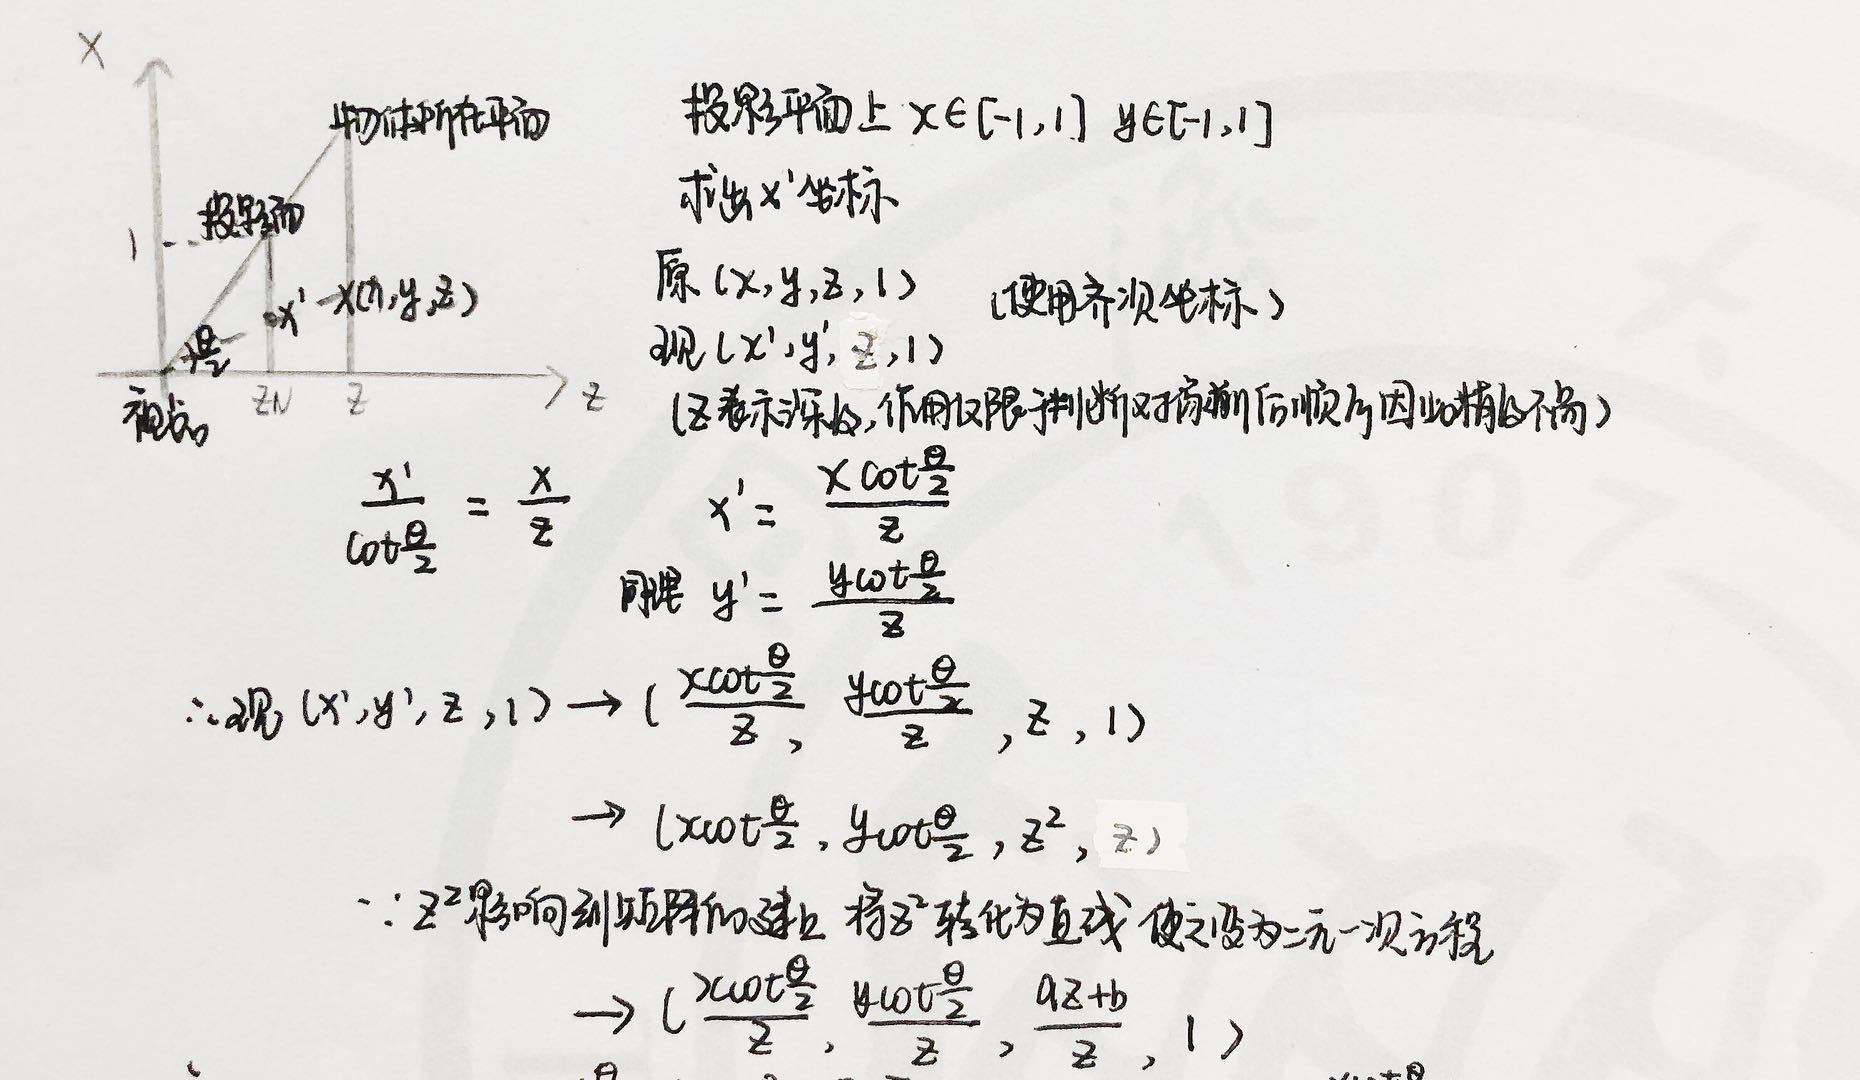 X
物体所在平面
投影面
1
x'
X(x,y,z)
θ/2
视点
ZN
Z
Z
投影平面上 x∈[-1,1] y∈[-1,1]
求出x'坐标
原(x,y,z,1) (使用齐次坐标)
现(x',y',z,1)
(Z表示深度,作用仅限于判断对痛前后顺序因此精度不高)
x'/cotθ/2 = x/z x' = xcotθ/2 / z
同理 y' = ycotθ/2 / z
∴现(x',y',z,1)→(xcotθ/2 / z, ycotθ/2 / z, z, 1)
→(xcotθ/2, ycotθ/2, z², z)
∵z²影响到矩阵的建立 将z²转化为直线 使之变为二元一次方程
→(xcotθ/2 / z, ycotθ/2 / z, az+b / z, 1)